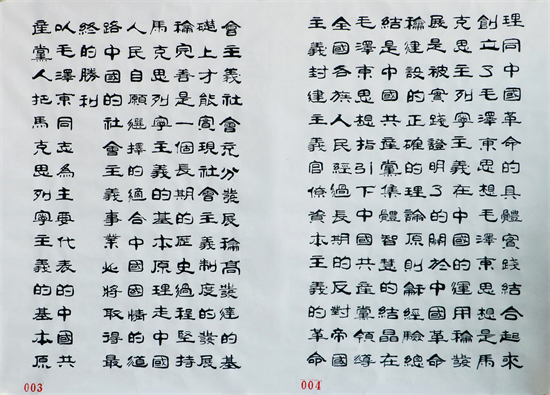 會主義社會充分發展龢高度發達的基
礎上才能實現社會主義制度的發展
龢完善是一個長期的歷史過程堅持
馬克思列寧主義的基本原理走中國
人民自願選擇的適合中國國情的道
路中國的社會主義事業必將取得最
終的勝利
以毛澤東同志為主要代表的中國共
產黨人把馬克思列寧主義的基本原
003
理同中國革命的具體實踐結合起來
創立了毛澤東思想毛澤東思想是馬
克思主列寧主義在中國的運用龢發
展是被實踐證明了的關於中國革命
龢建設的正確的理論原則龢經驗總
結是中國共產黨集體智慧的結晶在
毛澤東思想指引下中國共產黨領導
全國各族人民經過長期的反對帝國
主義封建主義官僚資本主義的革命
004